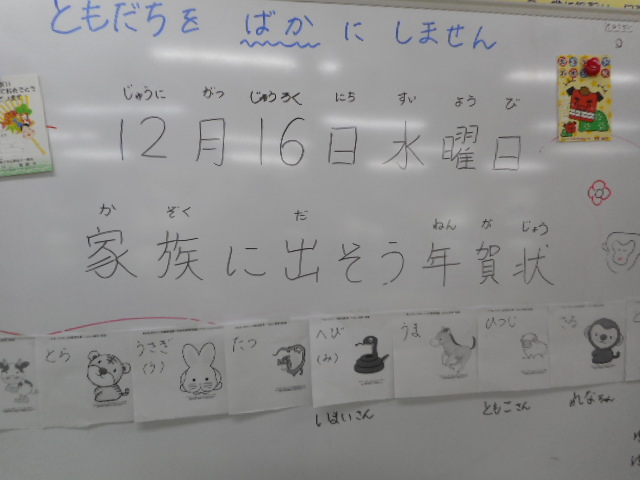 ともだちを ばか に しません
じゅうに がつ じゅうろく にち すい よう び
12月16日水曜日
か ぞく だ ねん が じょう
家族に出そう年賀状
とら
うさぎ
(う)
たつ
へび
(み)
うま
ひつじ
さる
しはいさん
ともこさん
れなちゃん